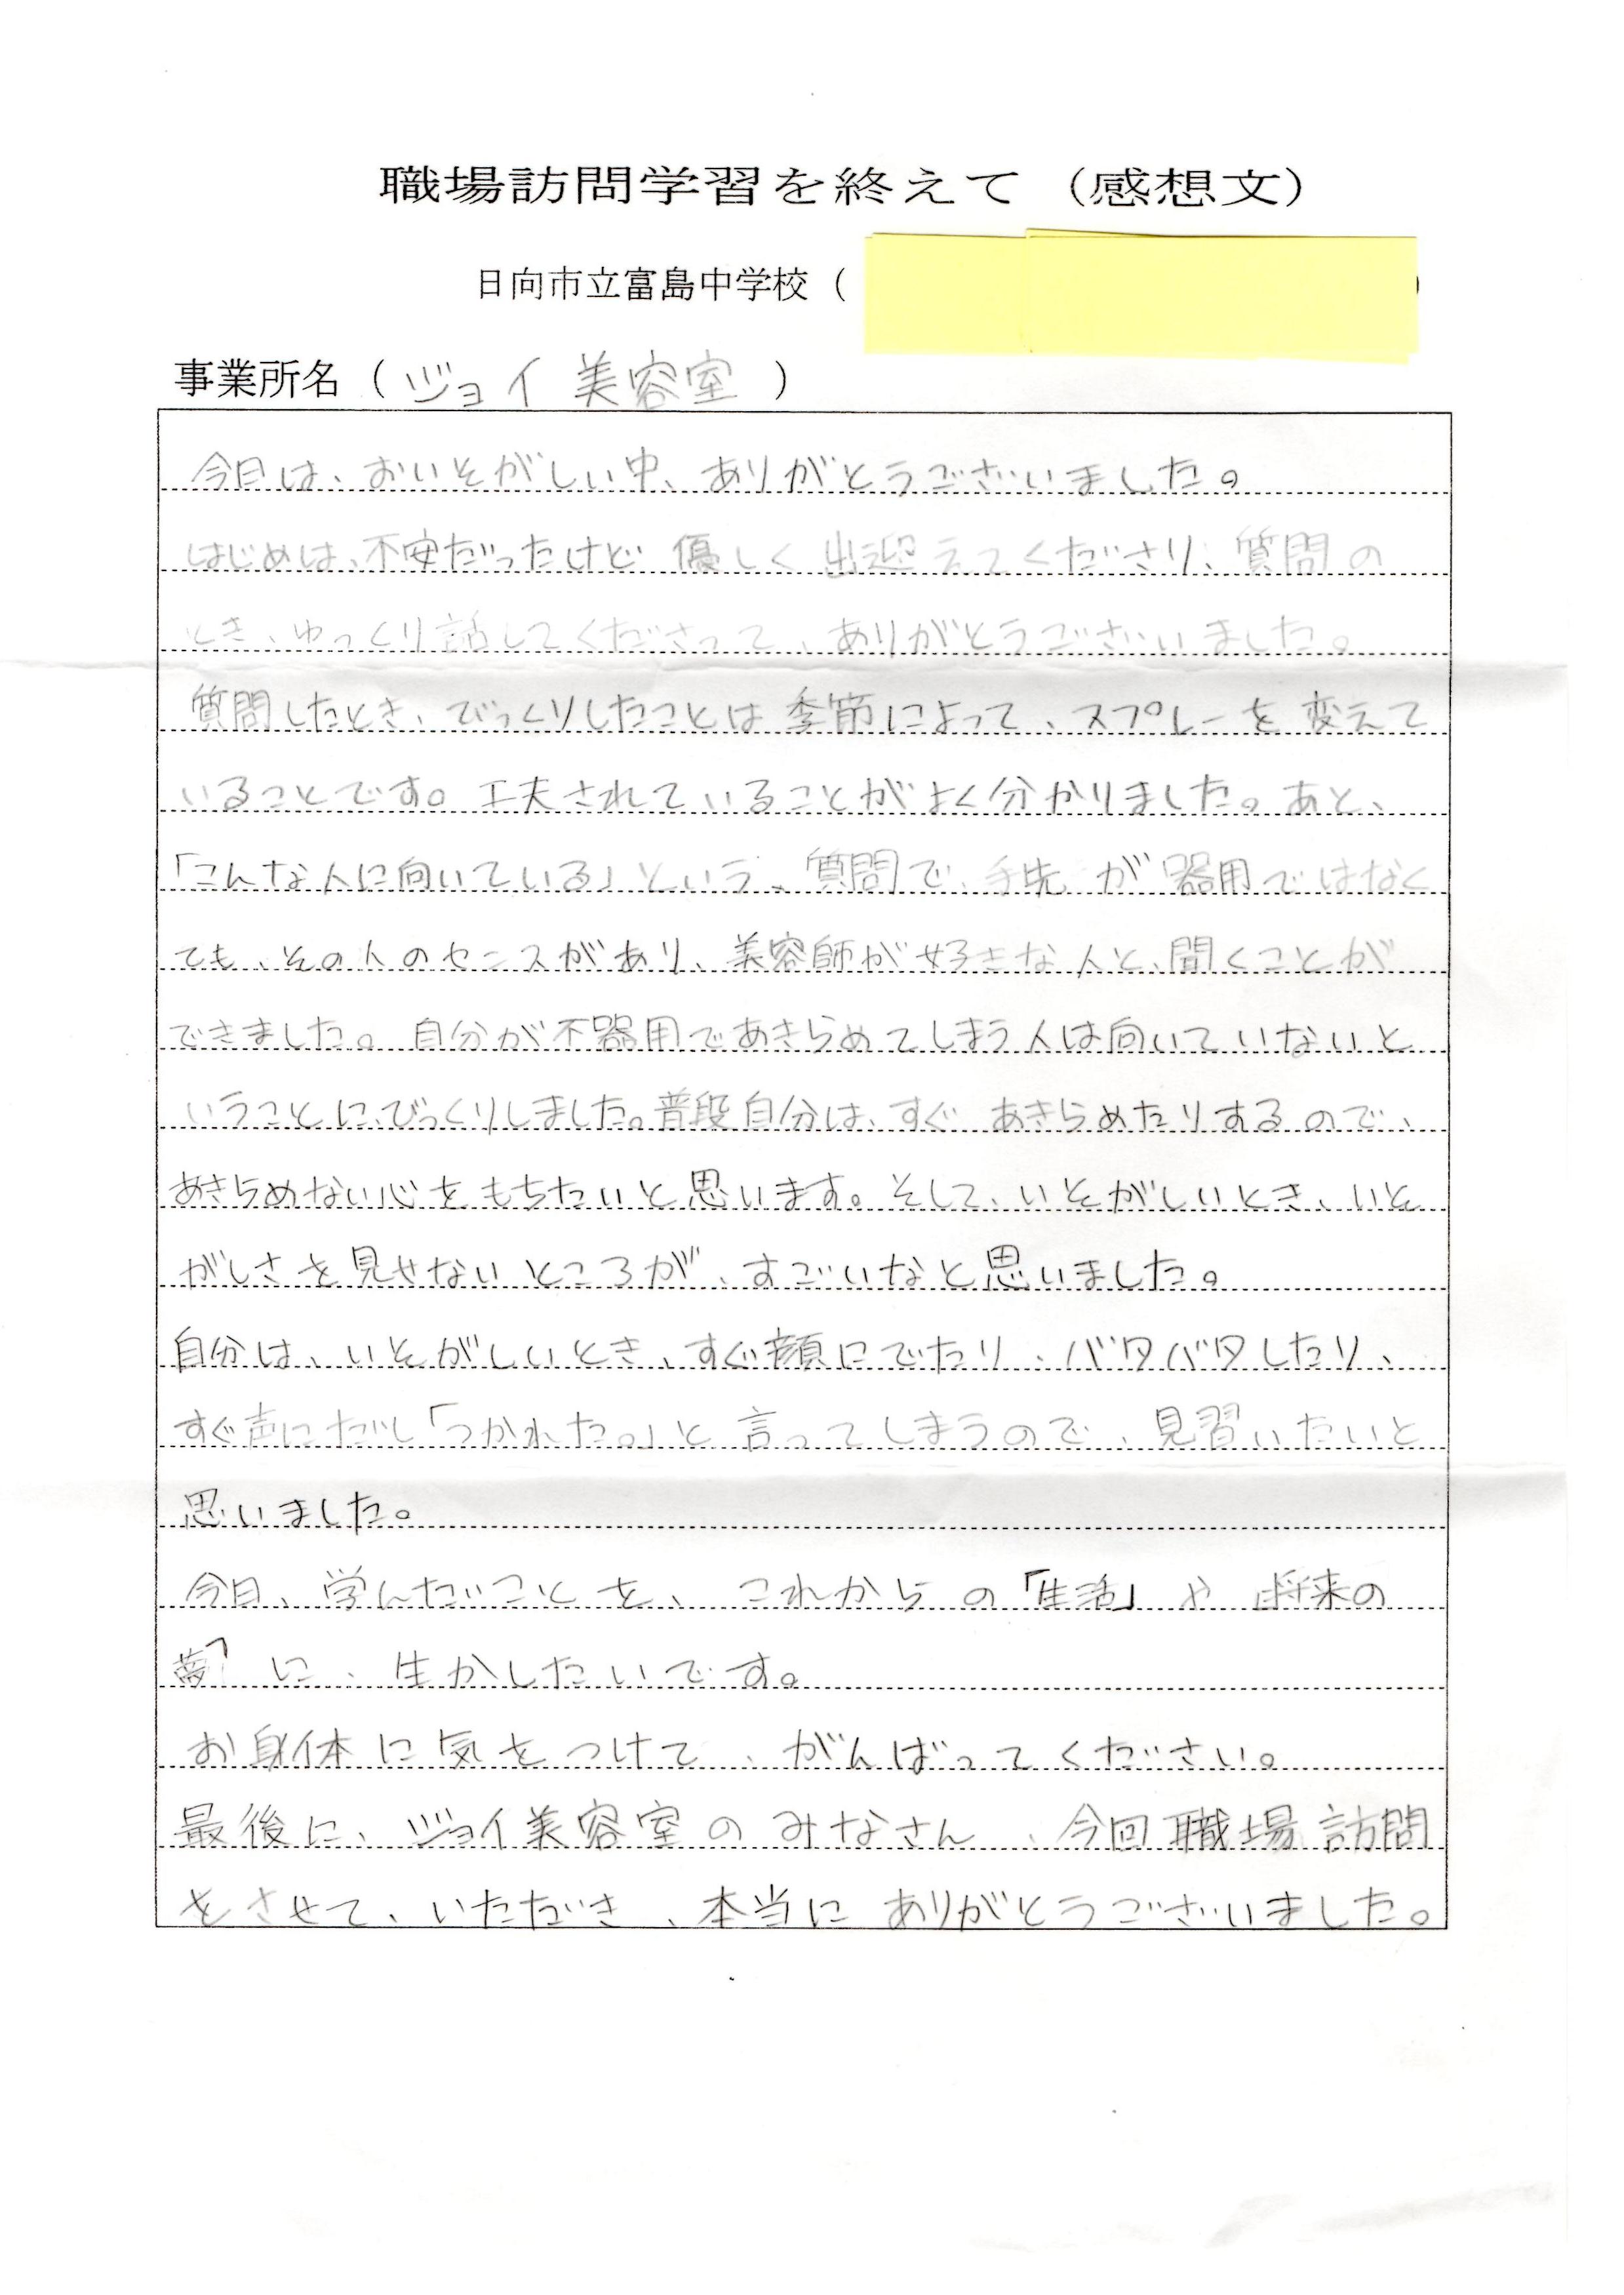 職場訪問学習を終えて（感想文）
日向市立富島中学校（
事業所名（ジョイ美容室）
今日は、おいそがしい中、ありがとうございました。
はじめは、不安だったけど優しく出迎えてくださり、質問の
とき、ゆっくり話してくださって、ありがとうございました。
質問したとき、びっくりしたことは季節によって、スプレーを変えて
いることです。工夫されていることがよく分かりました。あと、
「こんな人に向いている」という、質問で、手先が器用ではなく
ても、その人のセンスがあり、美容師が好きな人と、聞くことが
できました。自分が不器用であきらめてしまう人は向いていないと
いうことに、びっくりしました。普段自分は、すぐあきらめたりするので、
あきらめない心をもちたいと思います。そして、いそがしいとき、いそ
がしさを見せないところが、すごいなと思いました。
自分は、いそがしいとき、すぐ顔にでたり、バタバタしたり、
すぐ声にだし「つかれた。」と言ってしまうので、見習いたいと
思いました。
今日、学んだことを、これからの「生活」や「将来の
夢」に、生かしたいです。
お身体に気をつけて、がんばってください。
最後に、ジョイ美容室のみなさん、今回職場訪問
をさせて、いただき、本当にありがとうございました。